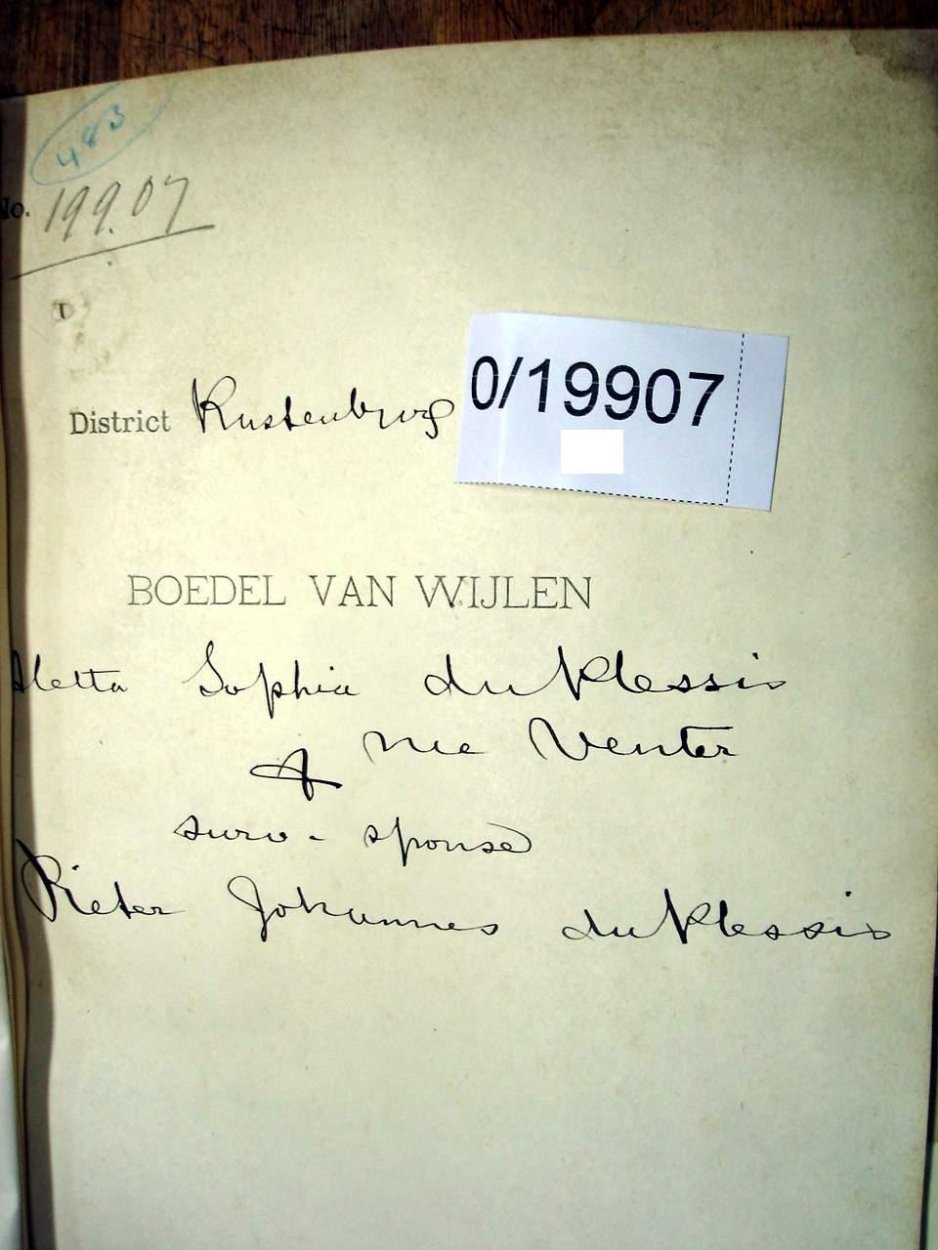 483
No. 199.07
District Rustenburg
0/19907
BOEDEL VAN WIJLEN
Aletta Sophia du Plessis
nee Venter
&
surv - spouse
Pieter Johannes du Plessis